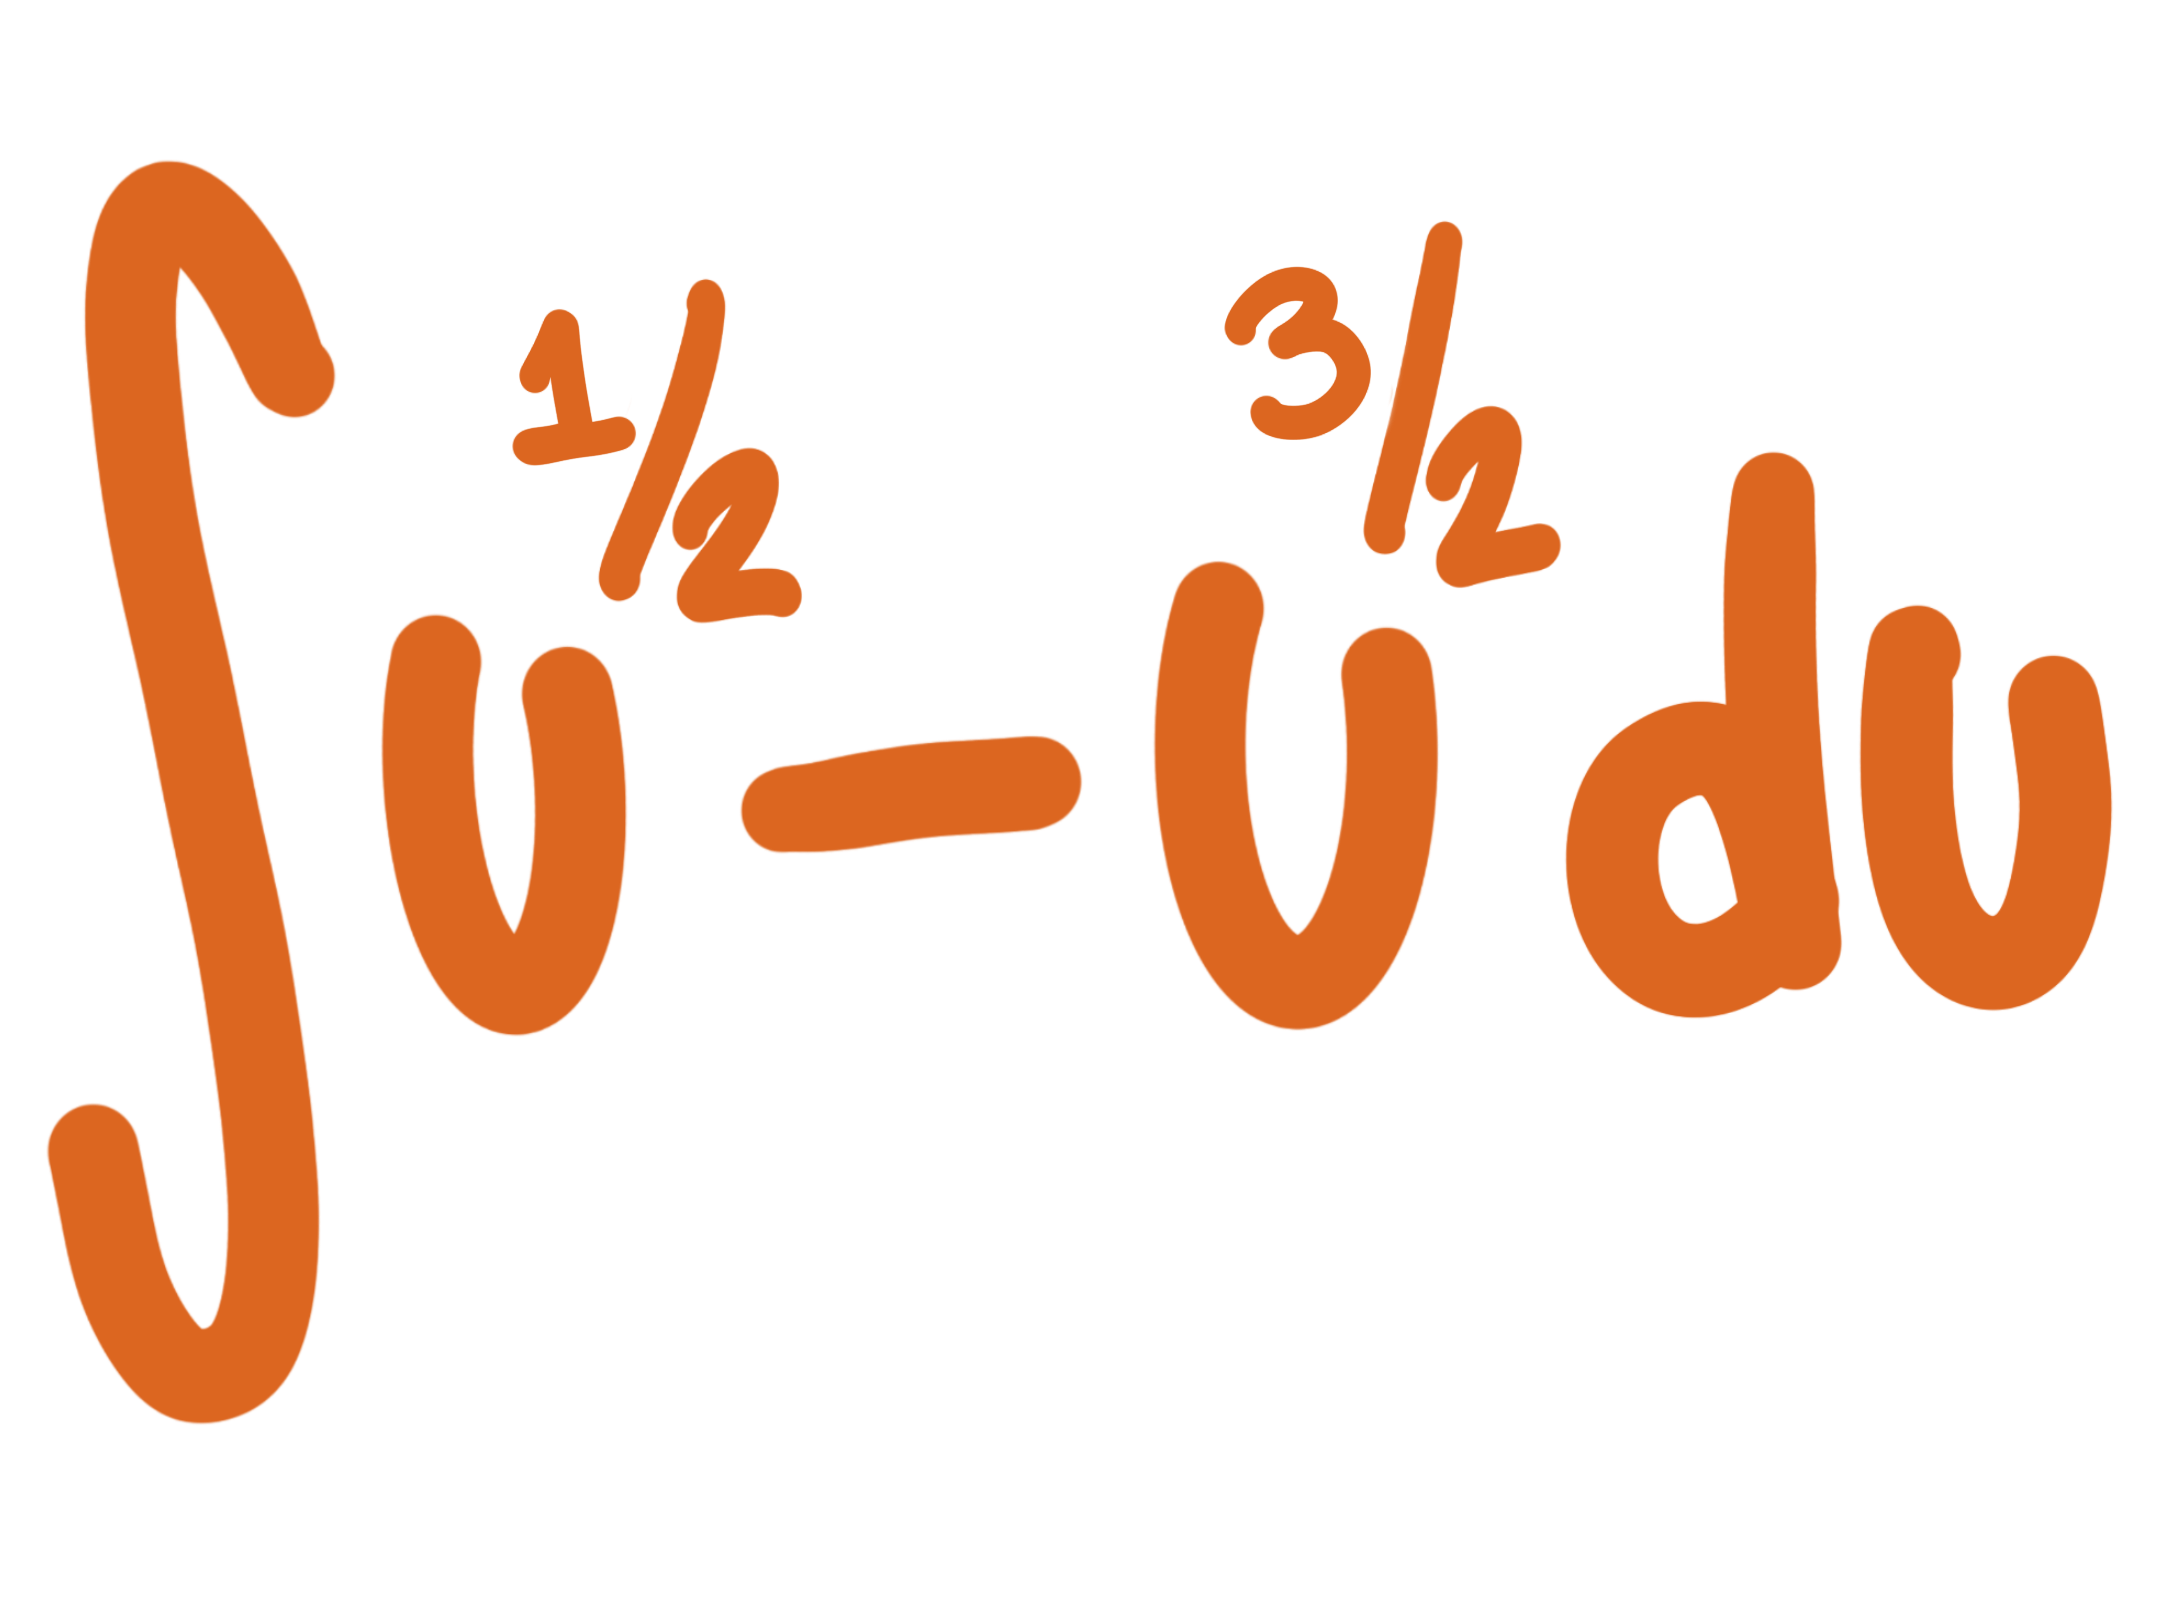 ∫u^{1/2} - u^{3/2} du